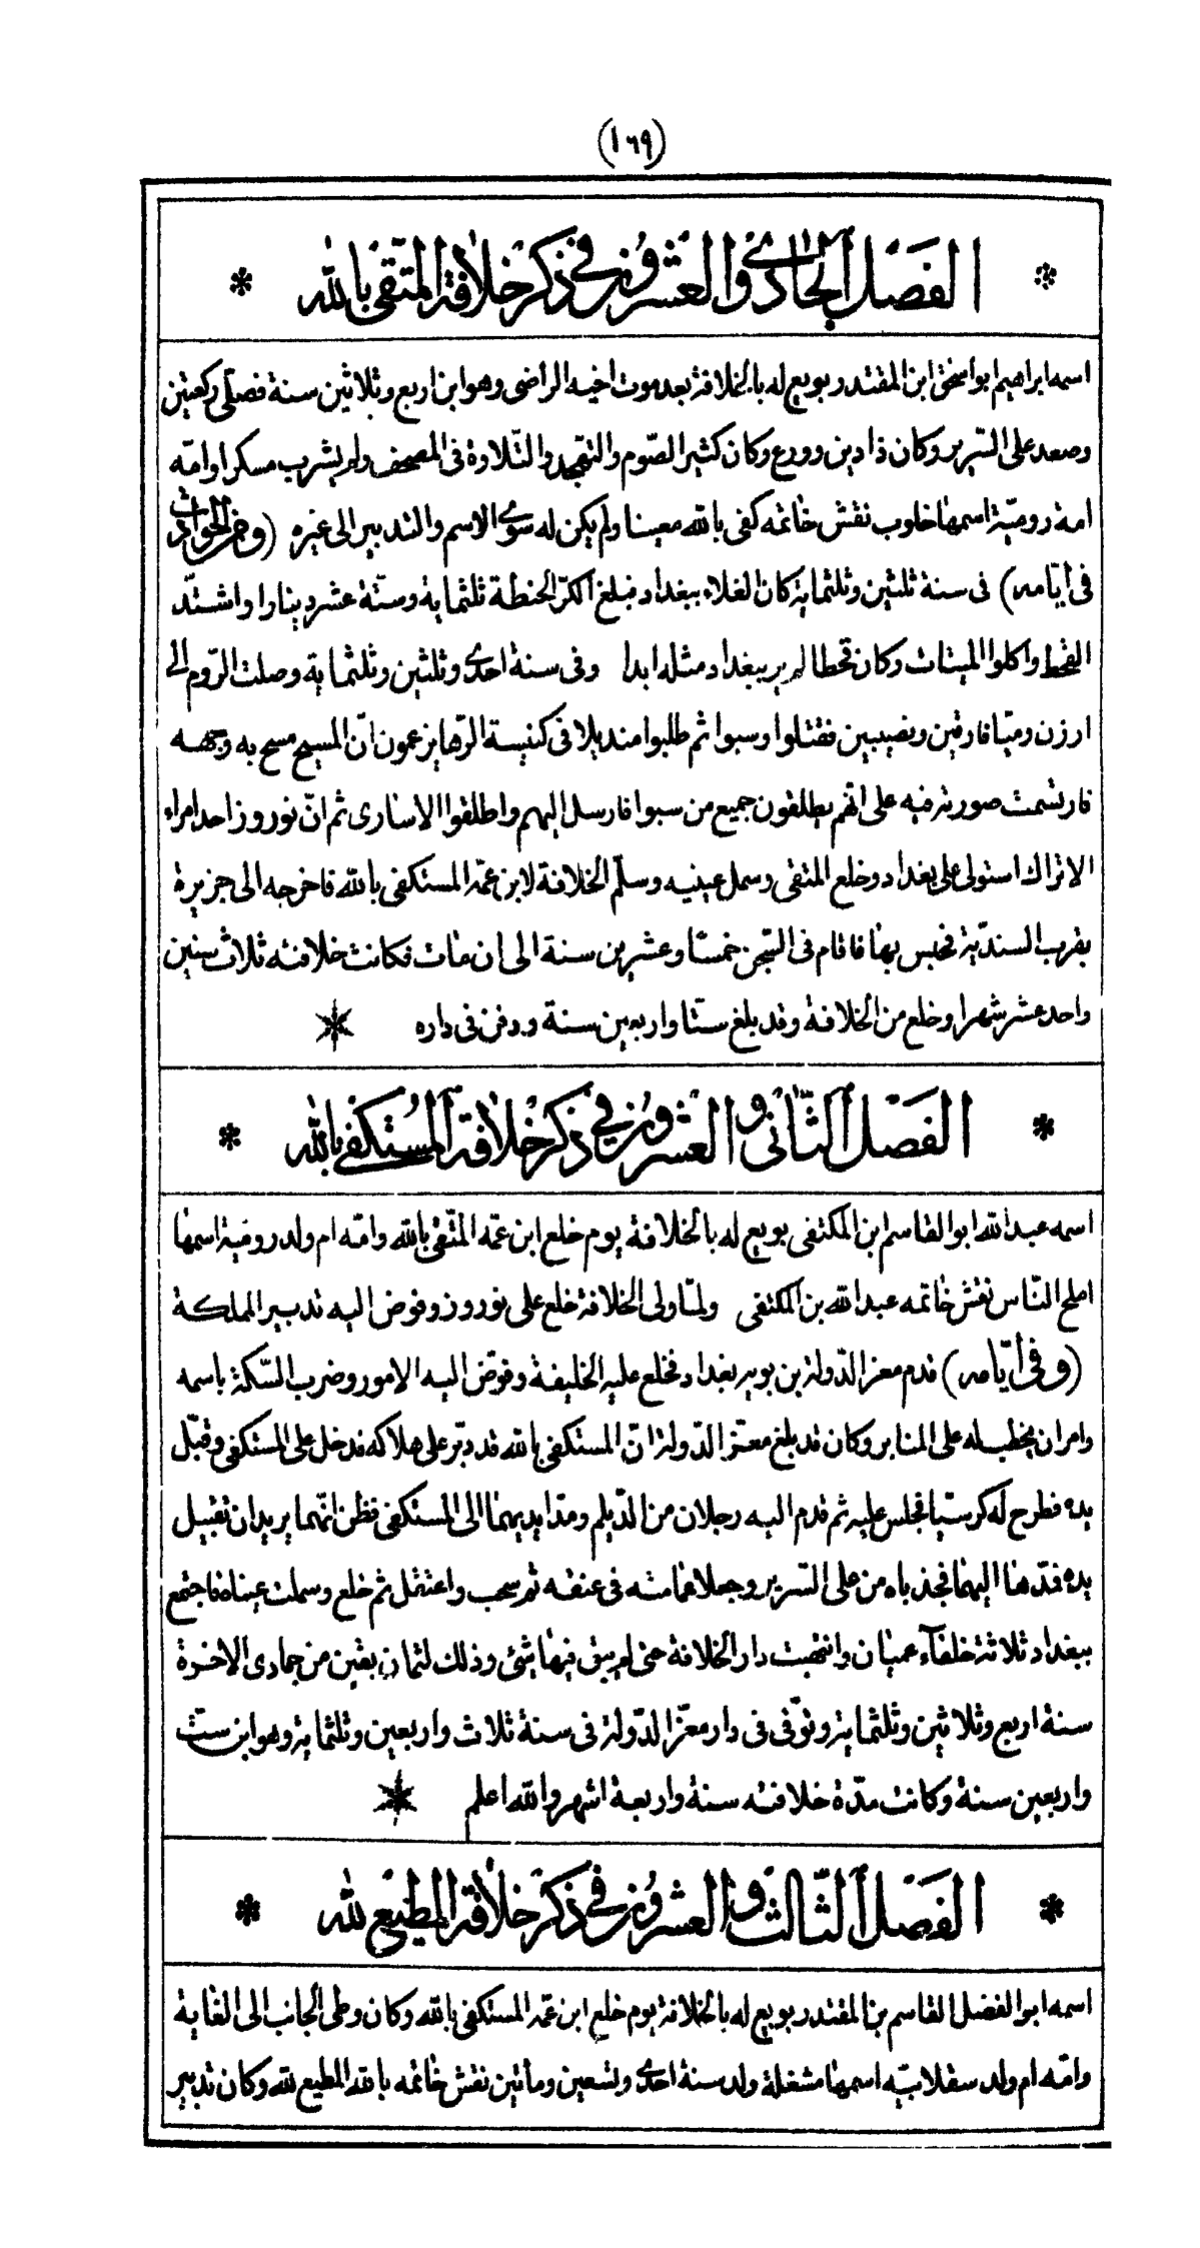 (١٦٩)
الفَصْل الحَادي والعشرون في ذكر خلافة المتّقي بالله
اسمه ابراهيم ابو اسحق ابن المقتدر بويع له بالخلافة بعد موت اخيه الراضى وهو ابن اربع وثلاثين سنة فصلّى ركعتين
وصعد على السّرير وكان ذا دين وورع وكان كثير الصّوم والتهجد والتّلاوة فى المصحف ولم يشرب مسكرا وامّه
امة روميّة اسمها خلوب نقش خاتمه كفى بالله معينا ولم يكن له سوى الاسم والتدبير الى غيره (ومن الحوادث
فى ايّامه) فى سنة ثلثين وثلثماية كان الغلاء ببغداد فبلغ الكرّ الحنطة ثلثماية وستّة عشر دينارا واشتّد
القحط واكلوا الميتات وكان قحطا لم ير ببغداد مثله ابدا وفى سنة احدى وثلثين وثلثماية وصلت الرّوم الى
ارزن وميّافارقين ونصيبين فقتلوا وسبوا ثم طلبوا منديلا فى كنيسة الرّها يزعمون انّ المسيح مسح به وجهه
فارتسمت صورته فيه على انّهم يطلقون جميع من سبوا فارسل اليهم واطلقوا الاسارى ثم انّ نوروز احد امراء
الاتراك استولى على بغداد وخلع المتقى وسمل عينيه وسلّم الخلافة لابن عمّه المستكفى بالله فاخرجه الى جزيرة
بقرب السنديّة فحبس بها فاقام فى السّجن خمسًا وعشرين سنة الى ان مات فكانت خلافته ثلاث سنين
واحد عشر شهرا وخلع من الخلافة وقد بلغ ستّا واربعين سنة ودفن فى داره
الفَصْل الثّاني والعشرون في ذكر خلافة المُستكفي بالله
اسمه عبد الله ابو القاسم ابن المكتفى بويع له بالخلافة يوم خلع ابن عمّه المتّقى بالله وامّه ام ولد روميّة اسمها
املح النّاس نقش خاتمه عبد الله بن المكتفى ولمّا ولى الخلافة خلع على نوروز وفوض اليه تدبير المملكة
(وفى ايّامه) قدم معز الدّولة بن بويه بغداد فخلع عليه الخليفة وفوّض اليه الامور وضرب السّكة باسمه
وامر ان يخطب له على المنابر وكان قد بلغ معزّ الدّولة انّ المستكفى بالله قد دبّر على هلاكه فدخل على المستكفى وقبّل
يده فطرح له كرسيّا فجلس عليه ثم قدم اليه رجلان من الدّيلم ومدّا يديهما الى المستكفى فظن انّهما يريدان تقبيل
يده فمدّها اليهما فجذباه من على السّرير وجعلا عمامته فى عنقه ثم سحب واعتقل ثم خلع وسملت عيناه فاجتمع
ببغداد ثلاثة خلفآء عميان وانتهبت دار الخلافة حتى لم يبق فيها شئ وذلك لثمان بقين من جمادى الاخرة
سنة اربع وثلاثين وثلثماية وتوّفى فى دار معزّ الدّولة فى سنة ثلاث واربعين وثلثماية وهو ابن ستّ
واربعين سنة وكانت مدّة خلافته سنة واربعة اشهر والله اعلم
الفَصْل الثّالث والعشرون في ذكر خلافة المطيع لله
اسمه ابو الفضل القاسم بن المقتدر بويع له بالخلافة يوم خلع ابن عمّه المستكفى بالله وكان وطى الجانب الى الغاية
وامّه ام ولد سقلابيّه اسمها مشغلة ولد سنة احدى وتسعين ومأتين نقش خاتمه بالله المطيع لله وكان تدبير